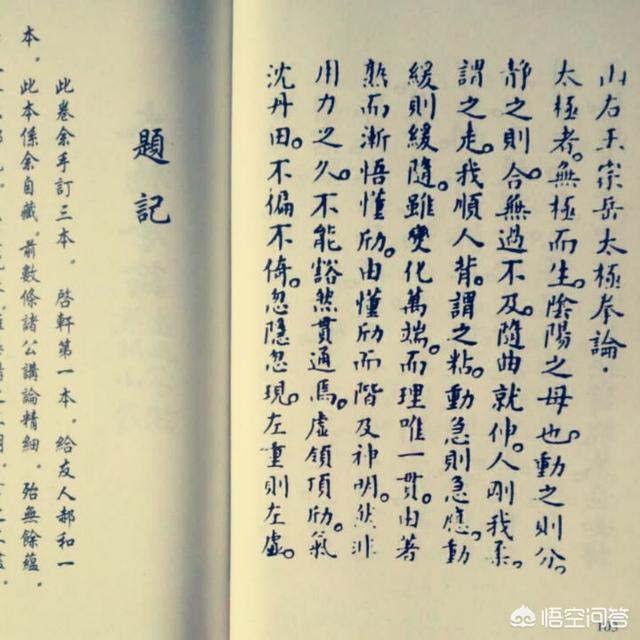 山右王宗岳太極拳論.
太極者。無極而生。陰陽之母也。動之則分。
靜之則合。無過不及。隨曲就伸。人剛我柔。
謂之走。我順人背。謂之粘。動急則急應。動
緩則緩隨。雖變化萬端。而理唯一貫。由著
熟而漸悟懂劤。由懂劤而階及神明。然非
用力之久。不能豁然貫通焉。虛領頂劤。氣
沈丹田。不偏不倚。忽隱忽現。左重則左虛。
題記
此卷余手訂三本。啓軒第一本。給友人郝和一
本。此本係余自藏。前數條諸公講論精細。殆無餘蘊。
悟空问答